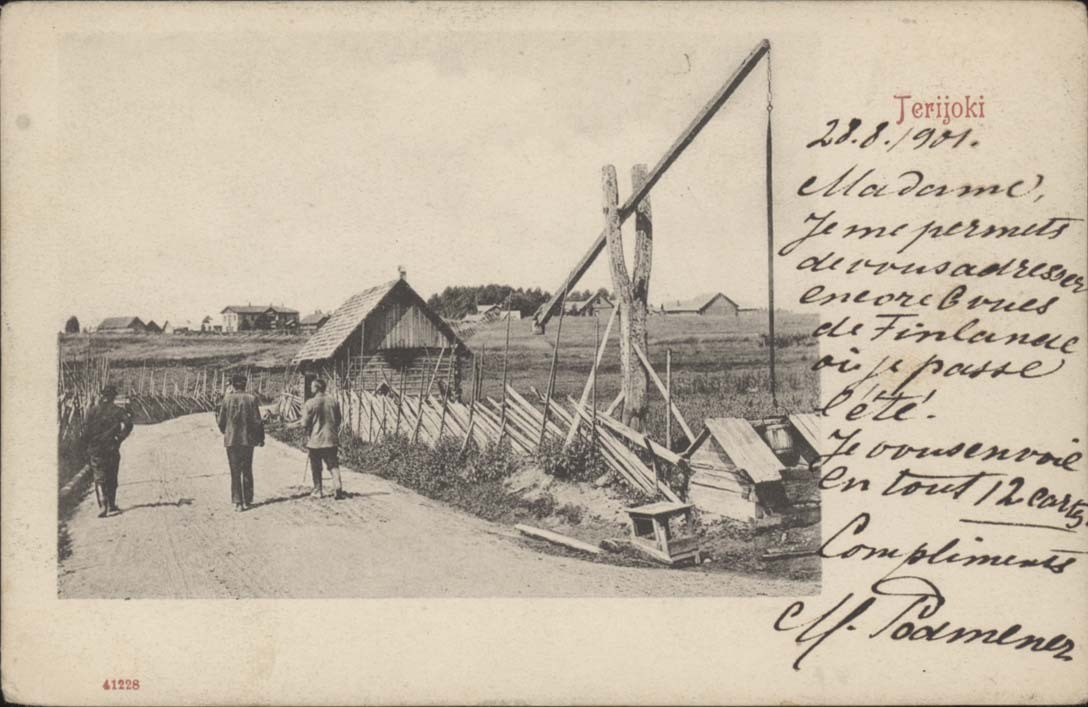 Terijoki
28.8.1901.
Madame,
Je me permets
de vous adresser
encore 6 vues
de Finlande
où je passe
l'été.
Je vous envoie
en tout 12 cartes
Compliments
M. Podmener
41228